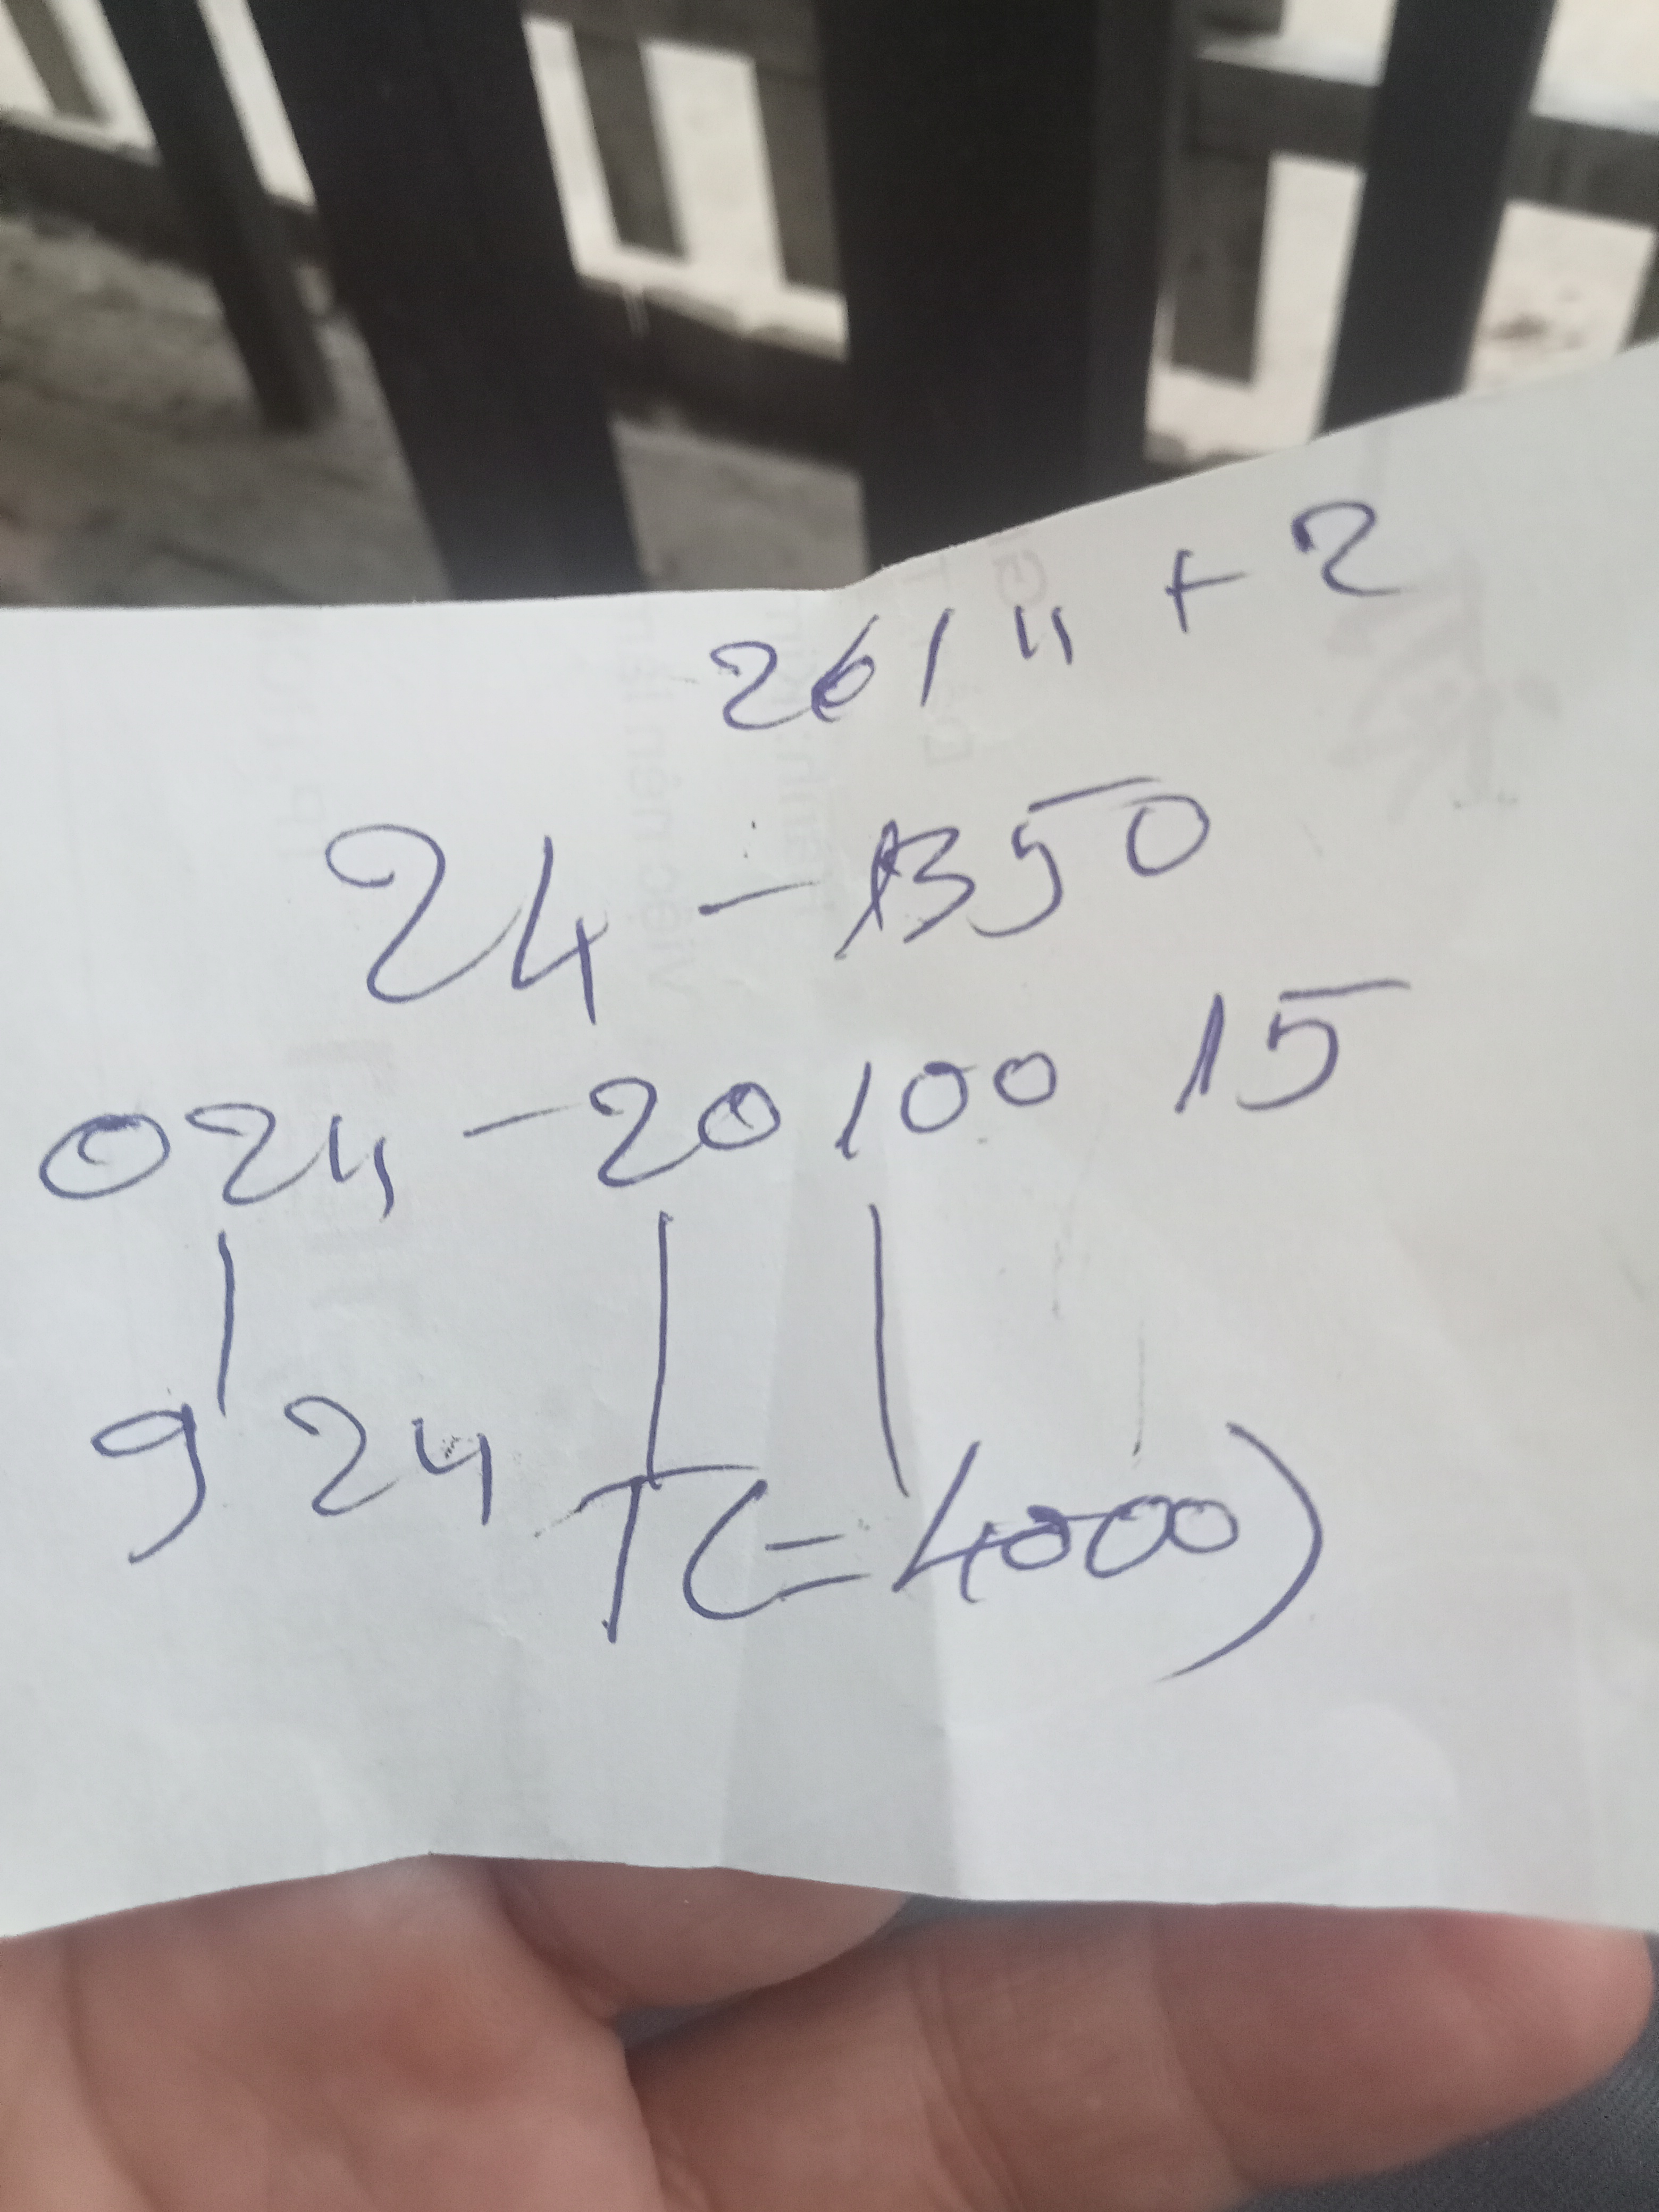 26/11 + 2
24 - 1350
024 - 20 100 15
9 24 TC = 4000)